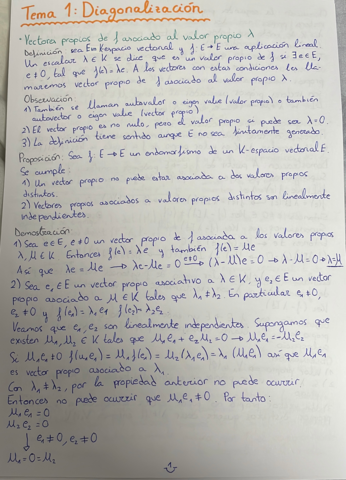 Tema 1: Diagonalización
· Vectores propios de f asociado al valor propio λ
Definición sea E un K-espacio vectorial y f: E→E una aplicación lineal.
Un escalar λ∈K se dice que es un valor propio de f si ∃e∈E,
e≠0, tal que f(e)=λe. A los vectores con estas condiciones les lla-
maremos vector propio de f asociado al valor propio λ.
Observación:
1) También se llaman autovalor o eigen value (valor propio) o también
autovector o eigen value (vector propio)
2) El vector propio es no nulo, pero el valor propio si puede ser λ=0.
3) La definición tiene sentido aunque E no sea finitamente generado
Proposición Sea f: E→E un endomorfismo de un K-espacio vectorial E.
Se cumple:
1) Un vector propio no puede estar asociada a dos valores propios
distintos.
2) Vectores propios asociados a valores propios distintos son linealmente
independientes.
Demostración:
1) Sea e∈E, e≠0 un vector propio de f asociada a los valores propios
λ, μ∈K. Entonces f(e)=λe y también f(e)=μe
Así que λe=μe → λe-μe=0 e≠0→ (λ-μ)e=0 → λ-μ=0 → λ=μ
2) Sea e₁∈E un vector propio asociativo a λ∈K, y e₂∈E un vector
propio asociado a μ∈K tales que λ₁≠λ₂ En particular e₁≠0,
e₂≠0 y f(e₁)=λ₁e₁ f(e₂)=λ₂e₂
Veamos que e₁, e₂ son linealmente independientes. Supongamos que
existen μ₁, μ₂∈K tales que μ₁e₁+e₂μ₂=0 → μ₁e₁=-μ₂e₂
Si μ₁e₁≠0 f(μ₁e₁)=μ₁f(e₁)=μ₁(λ₁e₁)=λ₁(μ₁e₁) así que μ₁e₁
es vector propio asociado a λ₁
Con λ₁≠λ₂, por la propiedad anterior no puede ocurrir.
Entonces no puede ocurrir que μ₁e₁≠0. Por tanto:
μ₁e₁=0
μ₂e₂=0
↓ e₁≠0, e₂≠0
μ₁=0=μ₂
1